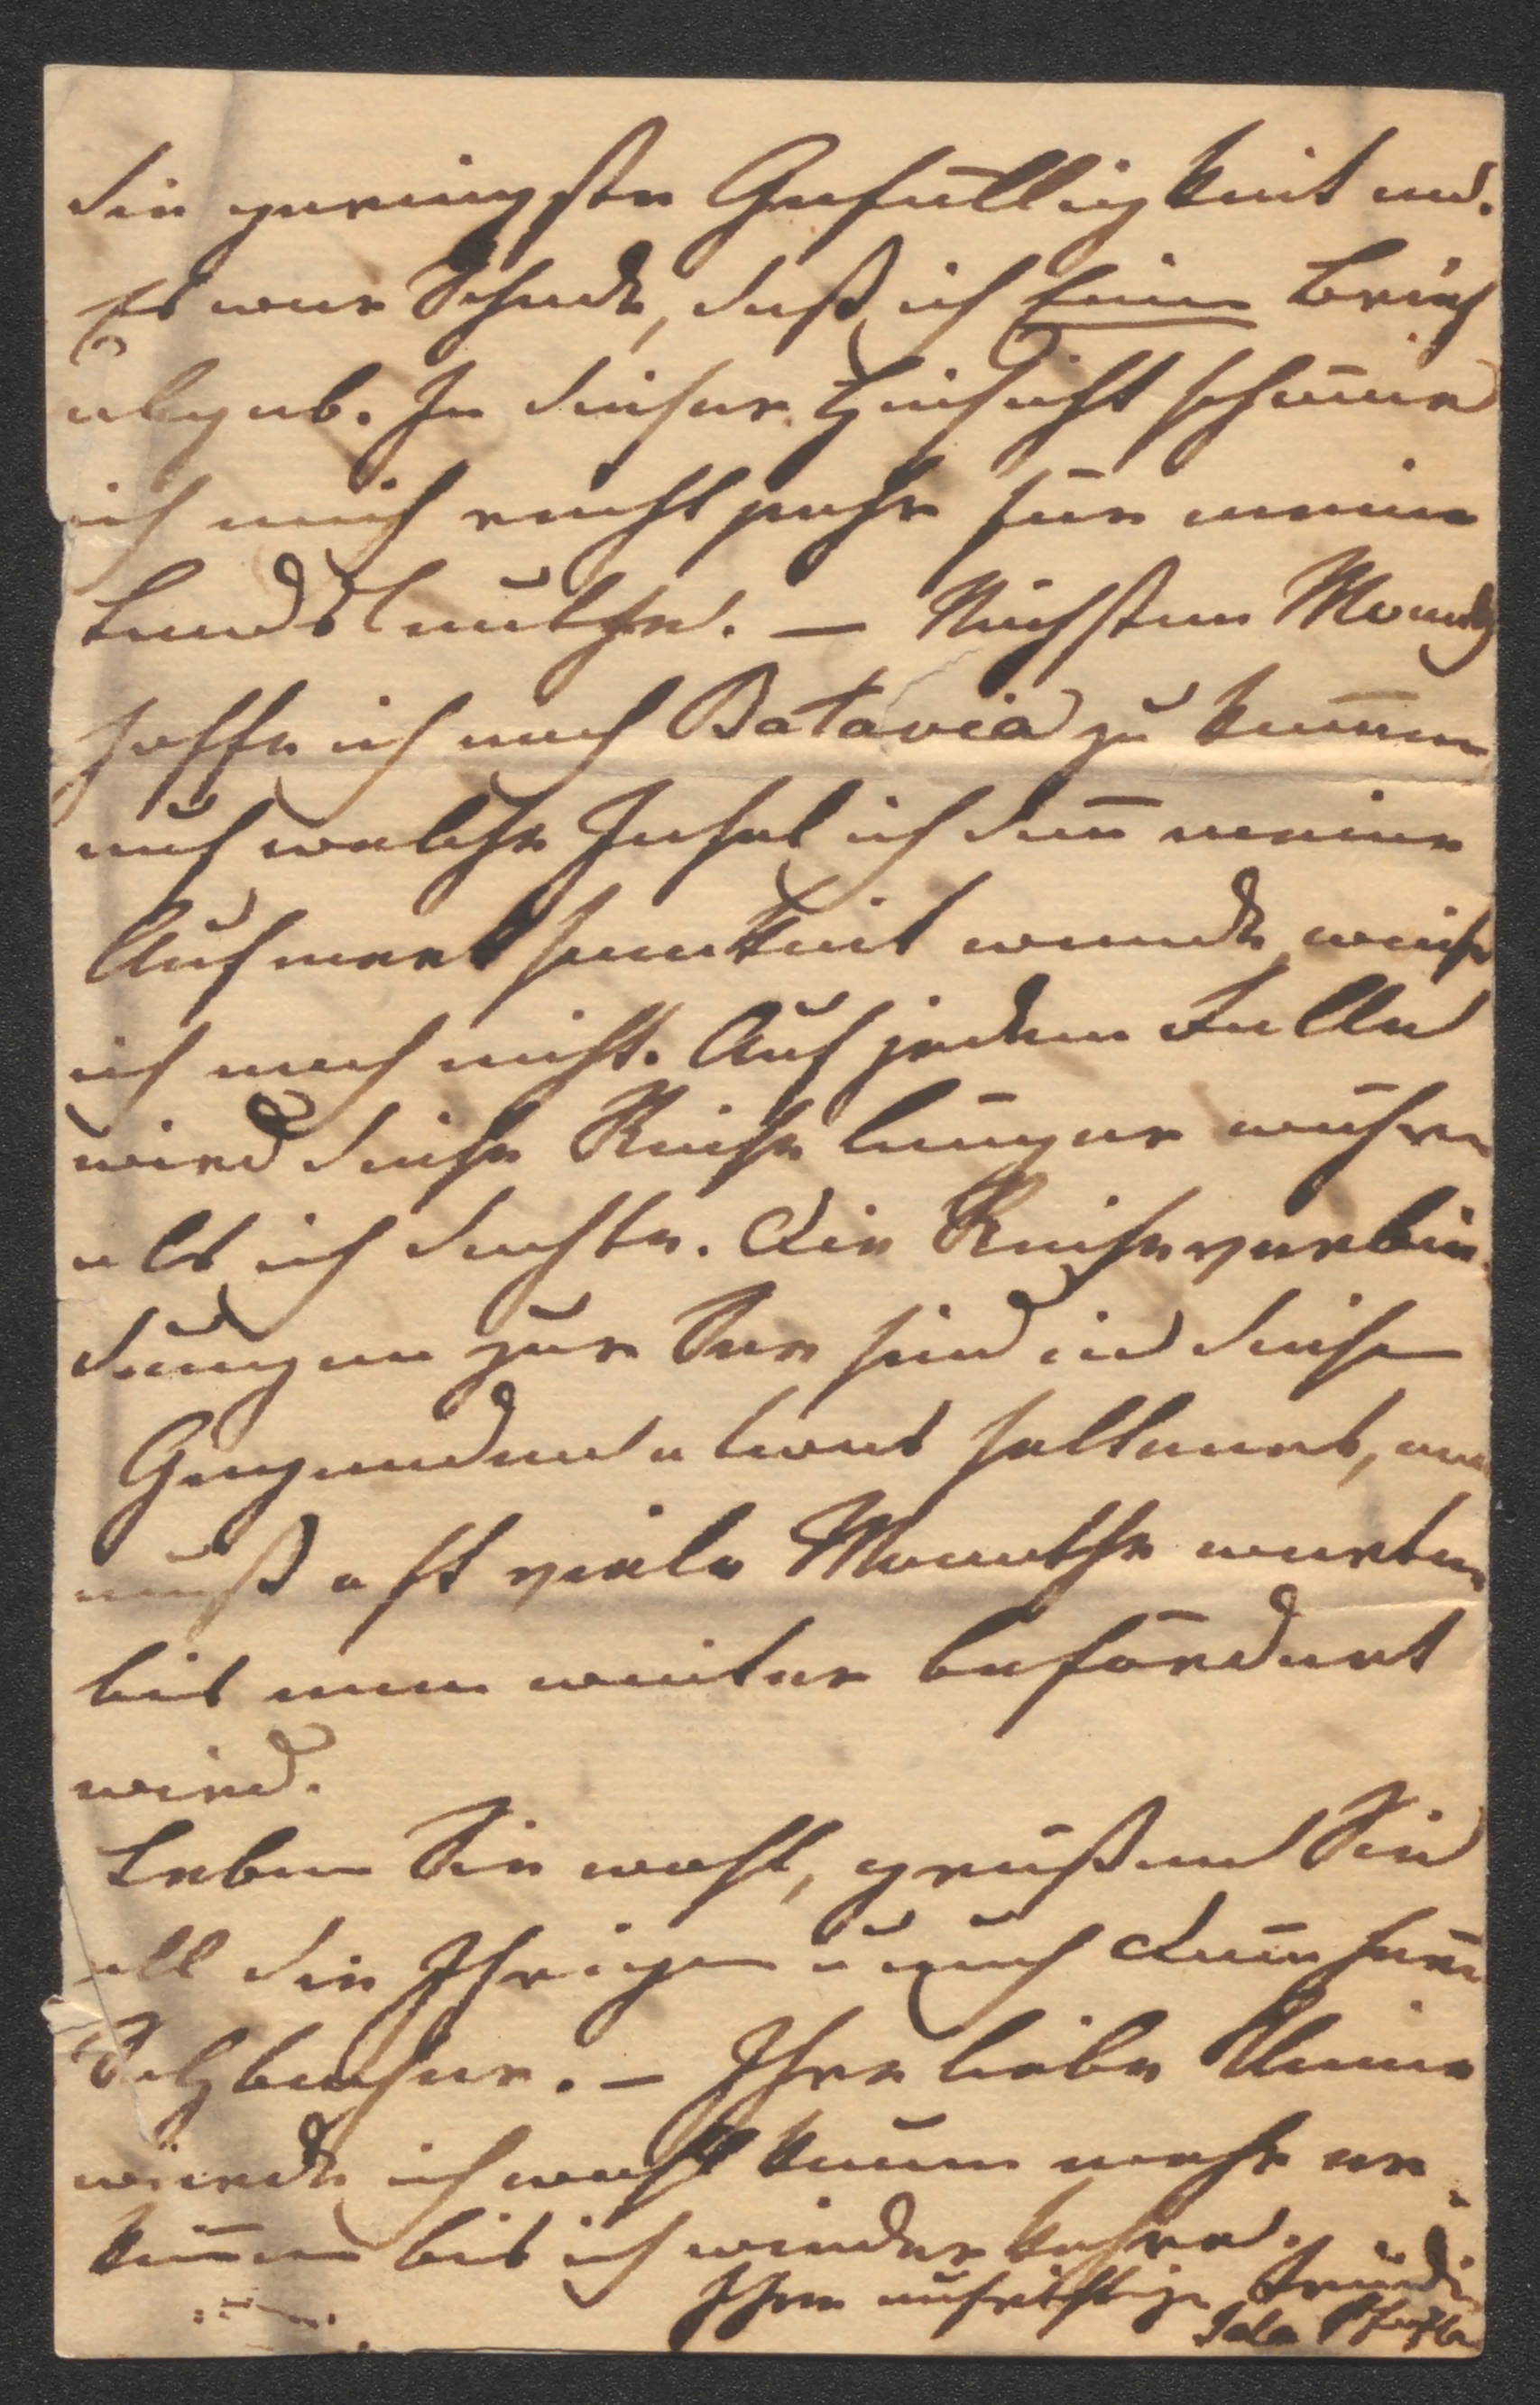 die geringste Gefälligkeit an.
Es war Schade, daß ich Einen Brief
abgab. In dieser Hinsicht schäme
ich mich recht sehr für meine
Landsleuthe. — Nächsten Monath
hoffe ich nach Batavia zu kommen
auf welche Insel ich dann meine
Aufmerksamkeit wende, weiß
ich noch nicht. Auf jedem Falle
wird diese Reise länger währen
als ich dachte. Die Reiseverbin-
dungen zur See sind in diesen
Gegenden etwas seltenes, man
muß oft viele Monathe warten
bis man weiter befördert
wird.
Leben Sie wohl, grüßen Sie
all die Ihrigen u auch
Salzbacher. — Ihre liebe Anna
würde ich wohl kaum mehr er-
kennen bis ich wiederkehre.
Ihre aufrichtige Freundin
Ida Pfeiffer